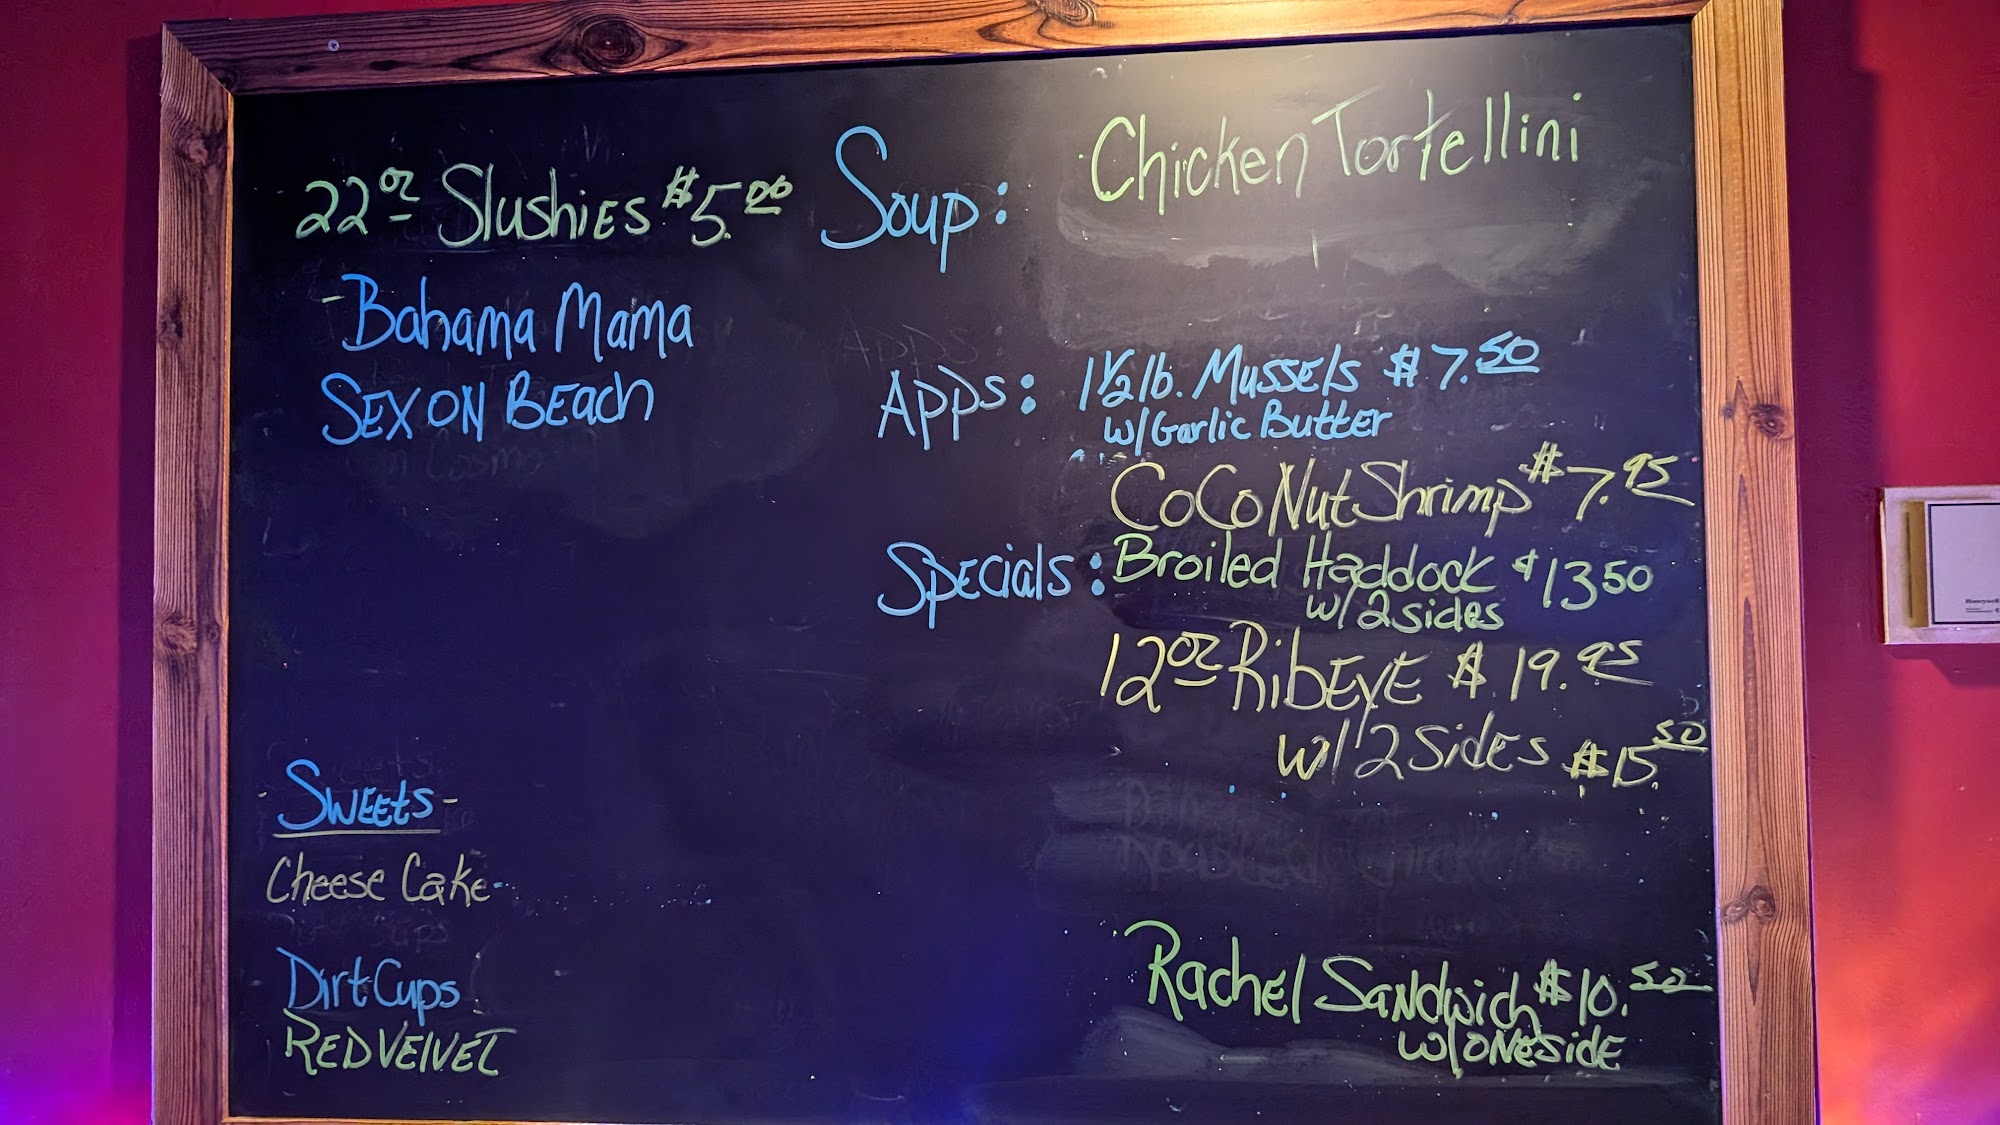 22oz Slushies $5.00
- Bahama Mama
SEX ON BEach
Soup: Chicken Tortellini
Apps: 1 1/2 lb. Mussels $7.50
w/Garlic Butter
CoCoNut Shrimp $7.95
Specials: Broiled Haddock $13 50
w/2 sides
12oz RibEyE $19.95
w/2 SidEs $15.50
- SwEEts -
CheeseCake
Dirt Cups
RED VElVET
RachEl Sandwich $10.50
w/ONESidE
Honeywell